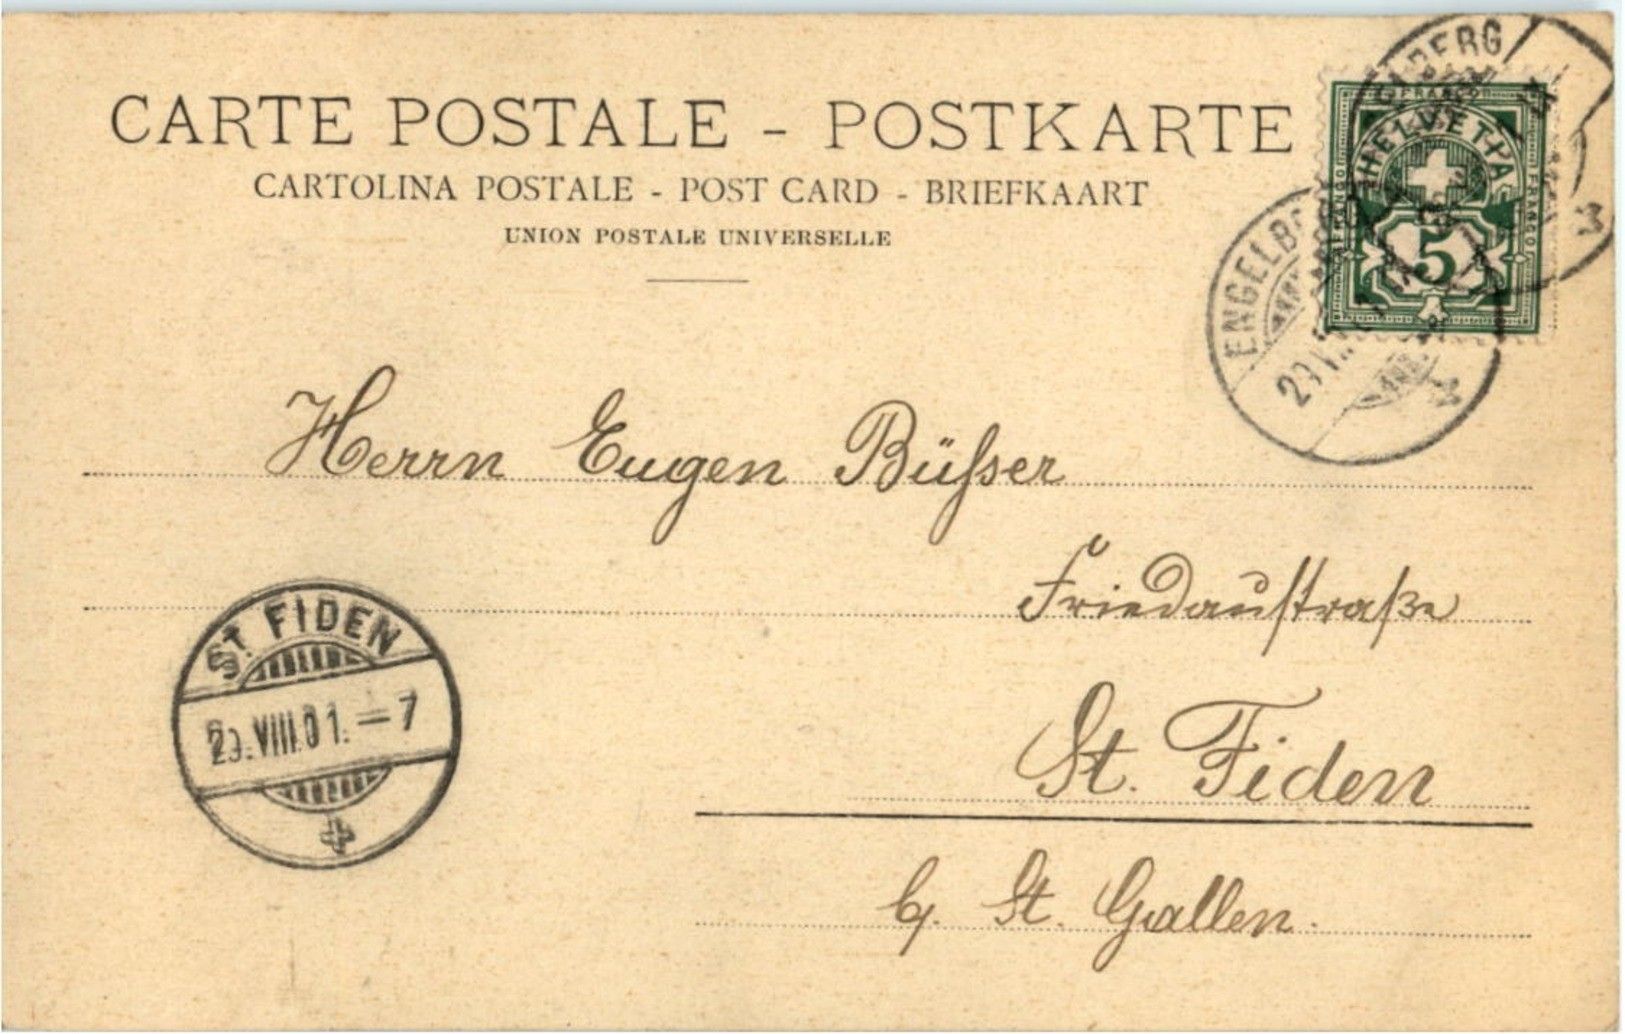 CARTE POSTALE - POSTKARTE
CARTOLINA POSTALE - POST CARD - BRIEFKAART
UNION POSTALE UNIVERSELLE
HELVETIA
FRANCO
FRANCO
5
ENGELBERG
Herrn Eugen Büſser
Friedauſtraße
St. Fiden
b/. St. Gallen.
ST. FIDEN
29.VIII.01.–7